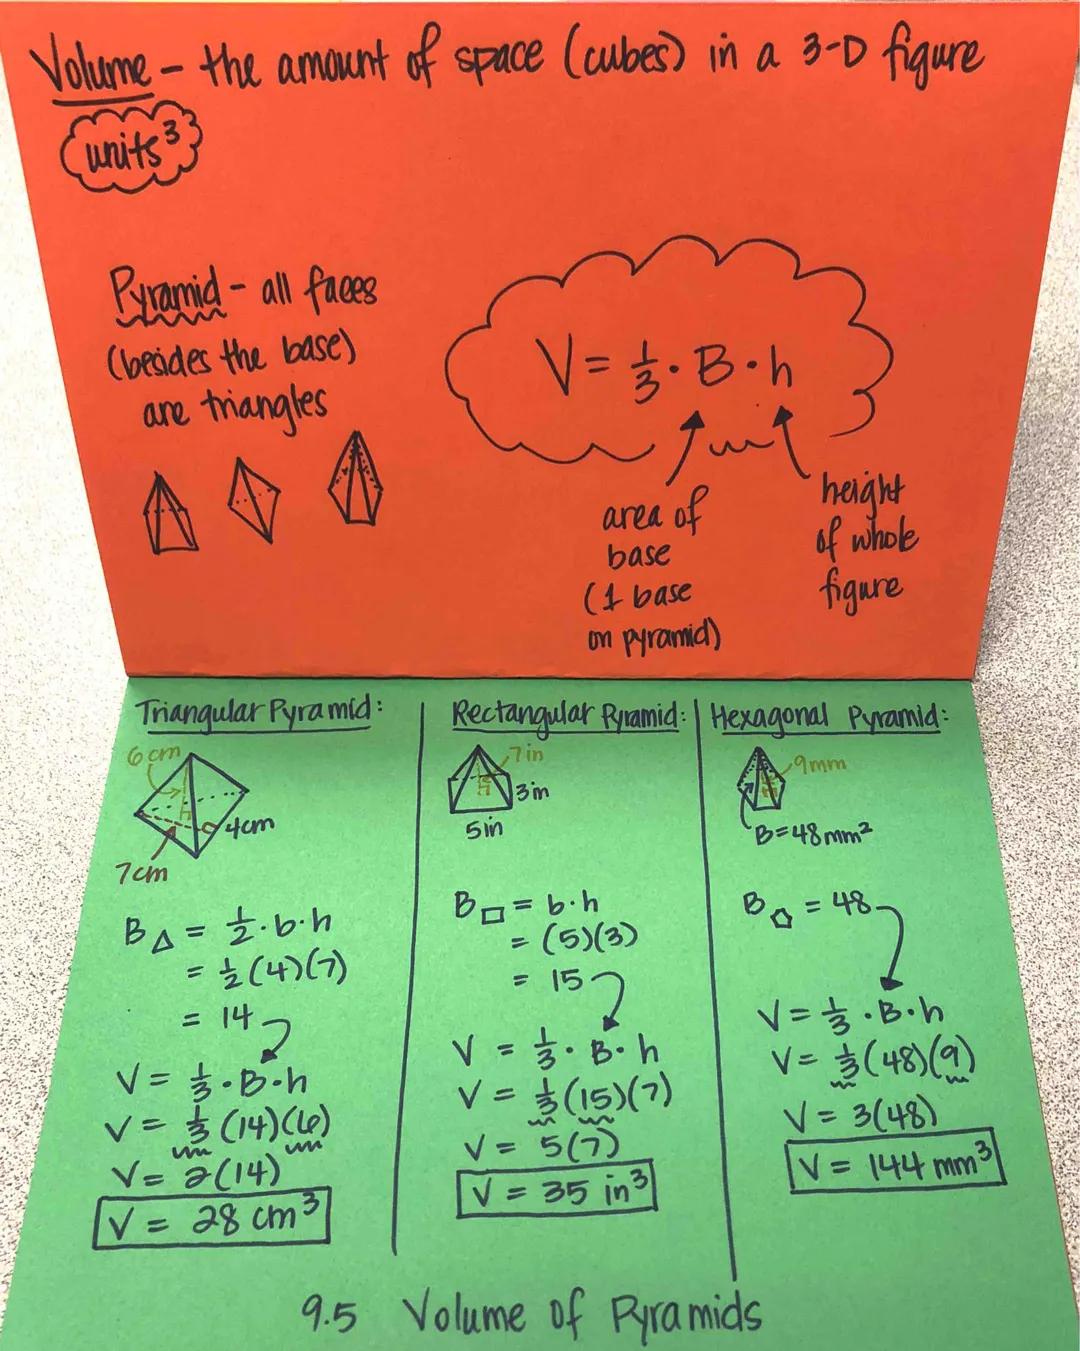 Volume - the amount of space (cubes) in a 3-D figure
units³
Pyramid - all faces
(besides the base)
are triangles
V = 1/3 · B · h
area of
base
(1 base
on pyramid)
height
of whole
figure
Triangular Pyramid:
6cm
h
4cm
7cm
B△ = 1/2 · b · h
= 1/2 (4)(7)
= 14
V = 1/3 · B · h
V = 1/3 (14)(6)
V = 2(14)
V = 28 cm³
Rectangular Pyramid:
7in
h
3in
5in
B▭ = b · h
= (5)(3)
= 15
V = 1/3 · B · h
V = 1/3 (15)(7)
V = 5(7)
V = 35 in³
Hexagonal Pyramid:
9mm
h
B = 48mm²
B⬠ = 48
V = 1/3 · B · h
V = 1/3 (48)(9)
V = 3(48)
V = 144 mm³
9.5 Volume of Pyramids